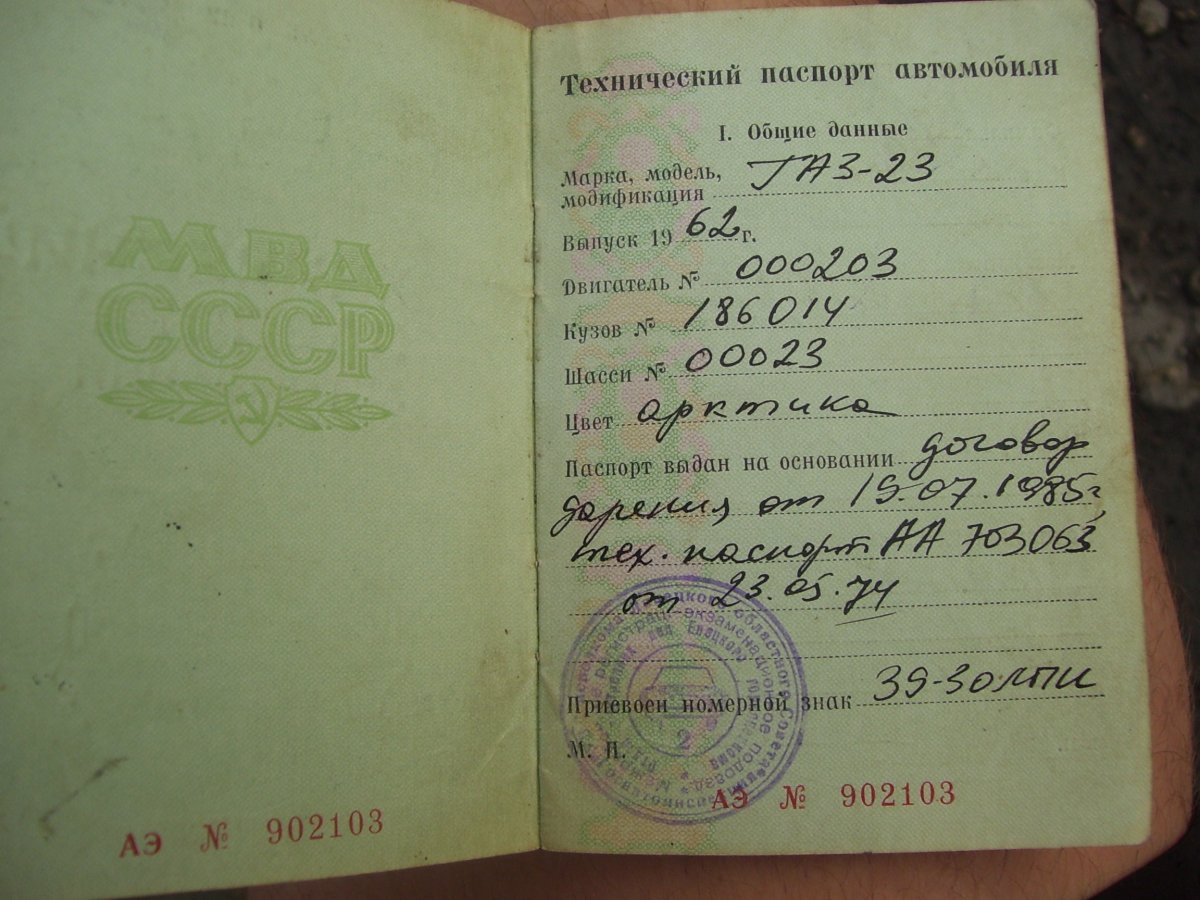 МВД
СССР
АЭ № 902103
Технический паспорт автомобиля
I. Общие данные
Марка, модель, ГАЗ-23
модификация
Выпуск 1962 г.
Двигатель № 000203
Кузов № 186014
Шасси № 00023
Цвет арктика
Паспорт выдан на основании договор
дарения от 19.07.1985г
тех. паспорт АА 703063
от 23.05.74
Присвоен номерной знак 39-30 ЛПИ
М. П.
АЭ № 902103